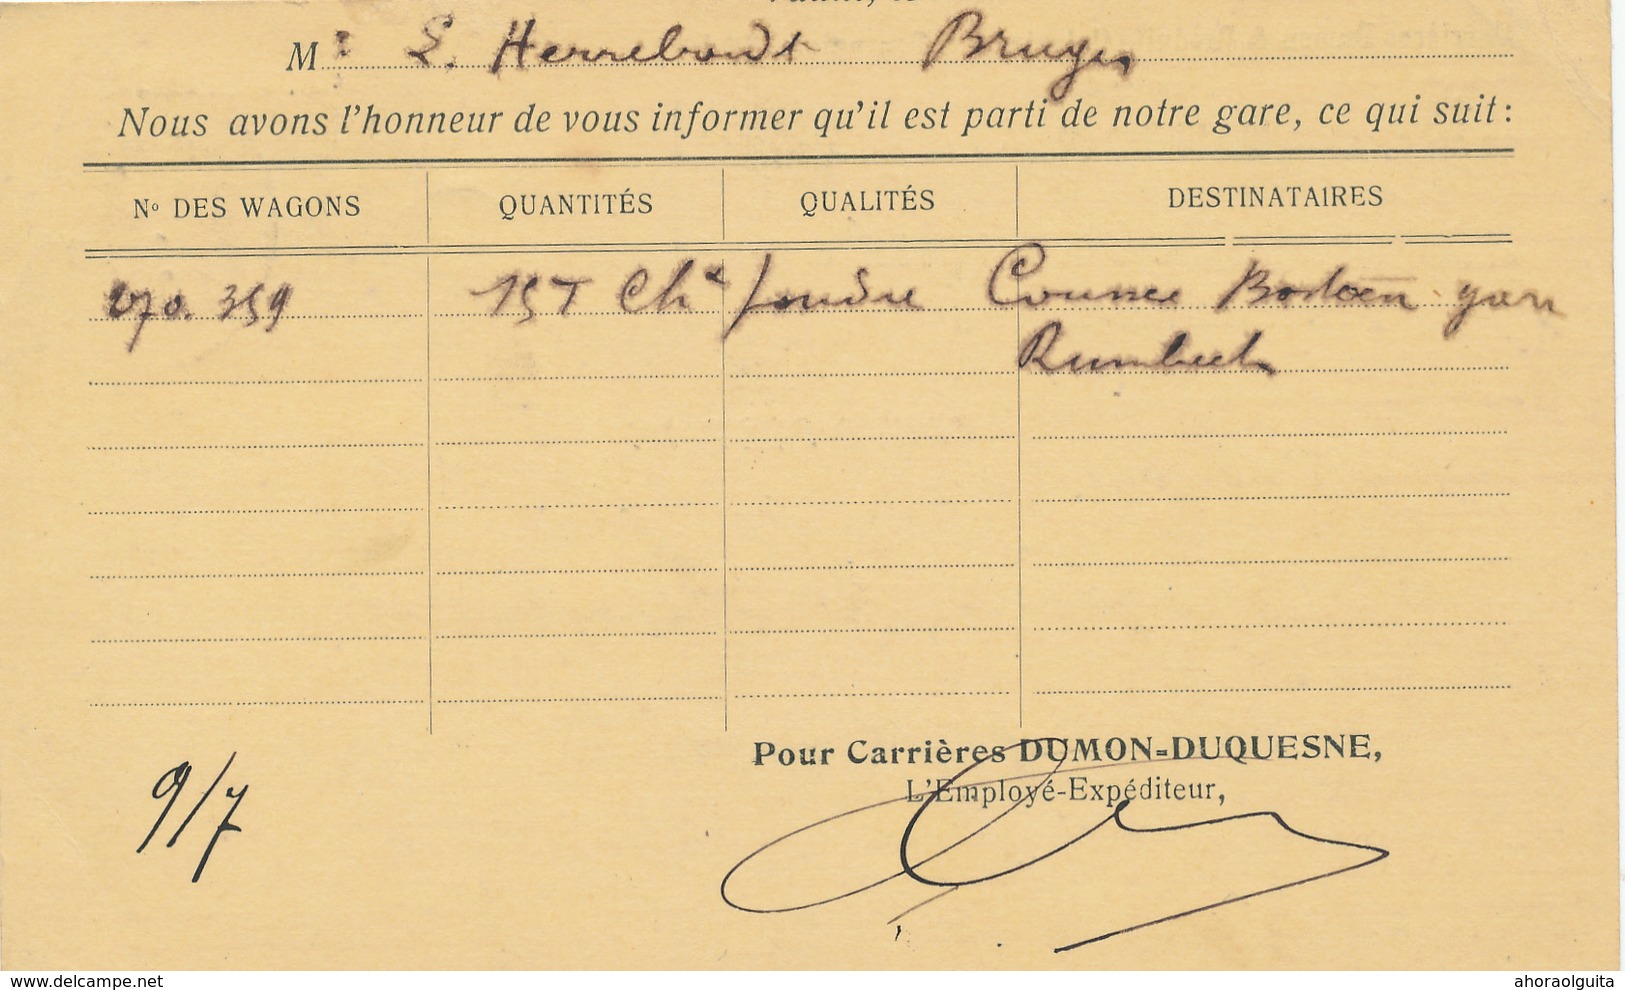 Mr L. Herreboudt Bruges
Nous avons l'honneur de vous informer qu'il est parti de notre gare, ce qui suit :
No DES WAGONS QUANTITÉS QUALITÉS DESTINATAIRES
270.359 15T Chx foudre Coussee Bostoen gare
Rumbeek
Pour Carrières DUMON-DUQUESNE,
L'Employé-Expéditeur,
9/7
ahoraolguita